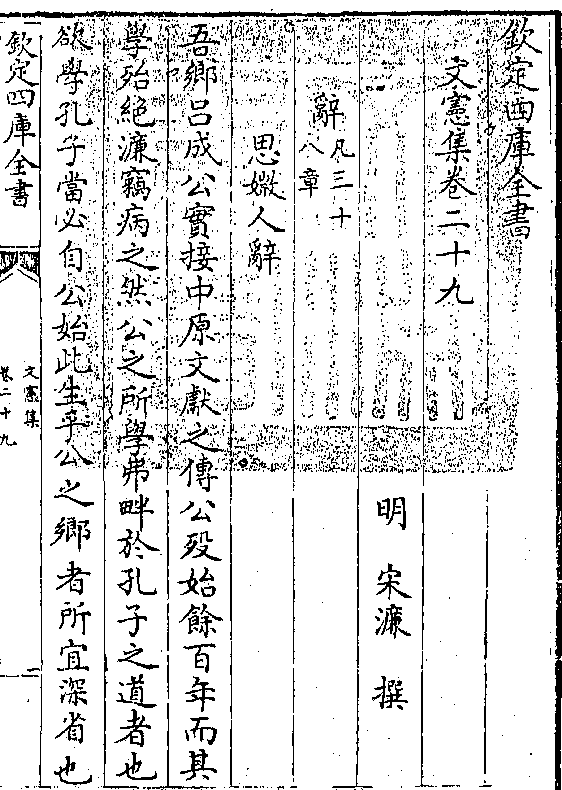 欽定四庫全書
文憲集卷二十九
明 宋濂 撰
辭凡三十八章
思媺人辭
吾鄉吕成公實接中原文獻之傳公殁始餘百年而其
學殆絶濂竊病之然公之所學弗畔於孔子之道者也
欲學孔子當必自公始此生乎公之鄉者所宜深省也
欽定四庫全書
文憲集
卷二十九
一